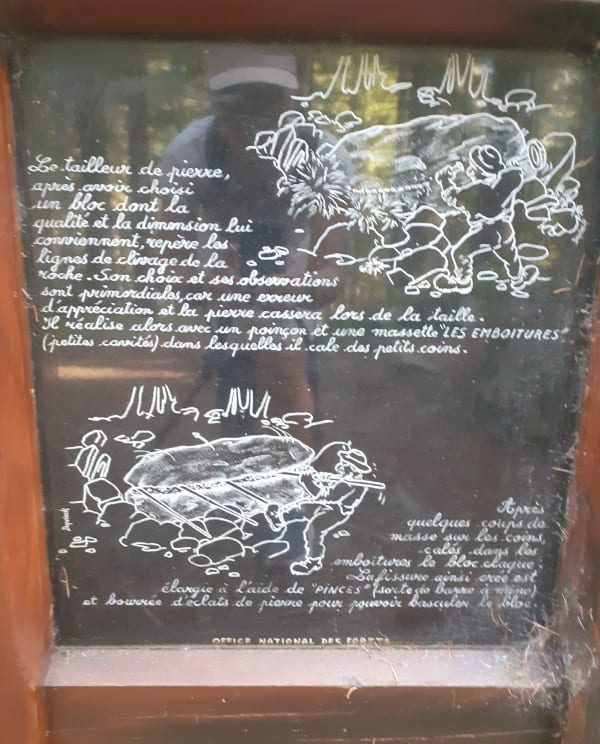 Le tailleur de pierre,
après avoir choisi
un bloc dont la
qualité et la dimension lui
conviennent, repère les
lignes de clivage de la
roche. Son choix et ses observations
sont primordiales, car une erreur
d'appréciation et la pierre cassera lors de la taille.
Il réalise alors avec un poinçon et une massette "LES EMBOITURES"
(petites cavités) dans lesquelles il cale des petits coins.
Après
quelques coups de
masse sur les coins,
calés dans les
emboitures le bloc claque
La fissure ainsi crée est
élargie à l'aide de "PINCES" (sorte de barre à mine)
et bourrée d'éclats de pierre pour pouvoir basculer le bloc.
OFFICE NATIONAL DES FORETS